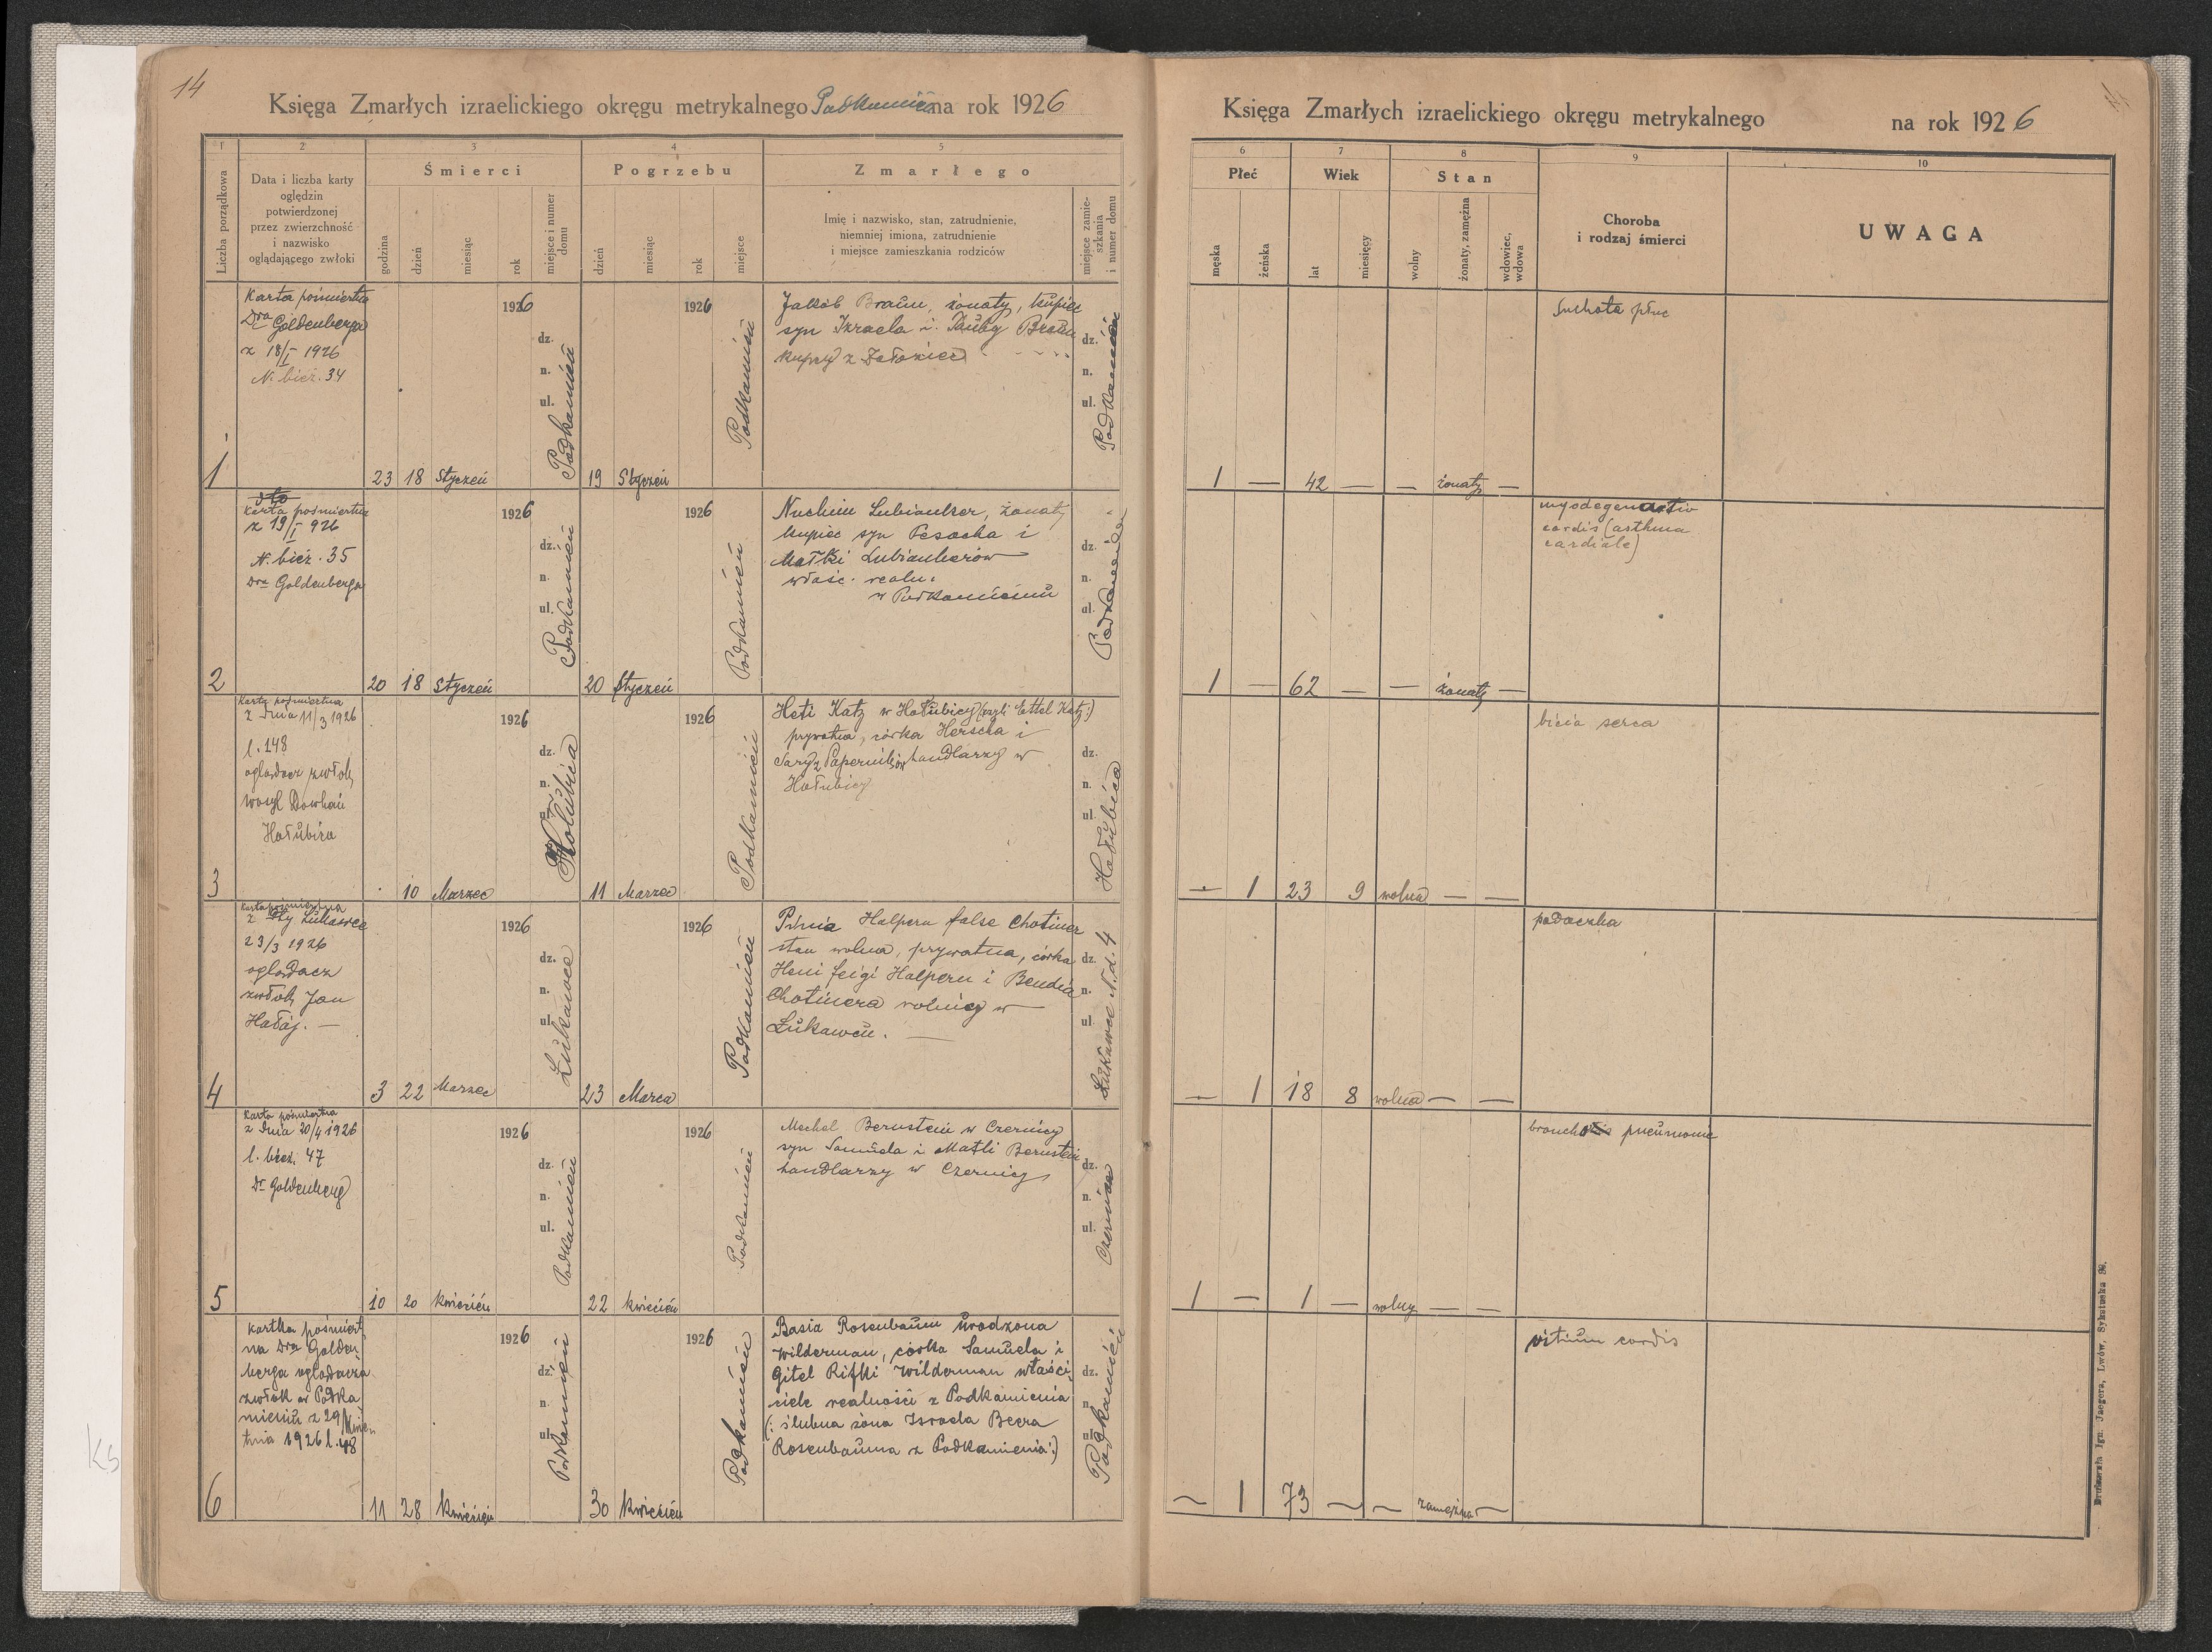 14
Księga Zmarłych izraelickiego okręgu metrykalnego Podkamień na rok 1926
1 2 3 4 5
Liczba porządkowa
Data i liczba karty
oględzin
potwierdzonej
przez zwierzchność
i nazwisko
oglądającego zwłoki
Śmierci
godzina
dzień
miesiąc
rok
miejsce i numer
domu
Pogrzebu
dzień
miesiąc
rok
miejsce
Zmarłego
Imię i nazwisko, stan, zatrudnienie,
niemniej imiona, zatrudnienie
i miejsce zamieszkania rodziców
miejsce zamie-
szkania
i numer domu
1
Karta pośmiertna
Dra Goldenberga
z 18/I 1926
N. bież. 34
23 18 Styczeń 1926
dz.
n.
ul.
Podkamień
19 Styczeń 1926 Podkamień
Jakób Braun, żonaty, kupiec
syn Izraela i Tauby Braun
kupcy z Załoziec
dz.
n.
ul.
Podkamień
2
Karta pośmiertna
z 19/I 926
N. bież. 35
Dra Goldenberga
20 18 Styczeń 1926
dz.
n.
ul.
Podkamień
20 Styczeń 1926 Podkamień
Nuchim Lubianker, żonaty
kupiec syn Pesacha i
Małki Lubiankerów
właśc. realn.
w Podkamieniu
dz.
n.
ul.
Podkamień
3
Karta pośmiertna
z dnia 11/3 1926
l. 148
oglądacz zwłok
Wasyl Dowhań
Hołubica
10 Marzec 1926
dz.
n.
Hołubica
11 Marzec 1926 Podkamień
Heti Katz w Hołubicy (czyli Ettel Katz:)
prywatna, córka Herscha i
Sary z Paperników handlarzy w
Hołubicy
dz.
n.
ul.
Hołubica
4
Karta pośmiertna
z Łukawce
23/3 1926
oglądacz
zwłok Jan
Hałaj. —
3 22 Marzec 1926
dz.
n.
ul.
Łukawce
23 Marca 1926 Podkamień
Halpern false Chotiner
stan wolna, prywatna, córka
Heni Feigi Halpern i Bendia
Chotinera rolnicy w
Łukawcu. —
dz.
n.
ul.
Łukawce N.d. 4
5
Karta pośmiertna
z dnia 20/4 1926
l. bież. 47
Dr Goldenberg
10 20 kwiecień 1926
dz.
n.
ul.
Podkamień
22 kwiecień 1926 Podkamień
Mechel Bernstein w Czernicy
syn Samuela i Matli Bernstein
handlarzy w Czernicy
dz.
n.
ul.
Czernica
6
kartka pośmiert
na Dra Golden
berga oglądacza
zwłok w Podka
mieniu z 29/kwiet
tnia 1926 l. 48
11 28 kwiecień 1926
dz.
n.
ul.
Podkamień
30 kwiecień 1926 Podkamień
Basia Rosenbaum urodzona
Wilderman, córka Samuela i
Gitel Rifki Wilderman właści
ciele realności z Podkamienia
(: ślubna żona Israela Beera
Rosenbauma z Podkamienia :)
dz.
n.
ul.
Podkamień
Księga Zmarłych izraelickiego okręgu metrykalnego na rok 1926
6 7 8 9 10
Płeć
męska
żeńska
Wiek
lat
miesięcy
Stan
wolny
żonaty, zamężna
wdowiec,
wdowa
Choroba
i rodzaj śmierci
UWAGA
Suchota płuc
1 — 42 — — żonaty —
myodegenartio
cordis (asthma
cardiale)
1 — 62 — — żonaty —
bicia serca
— 1 23 9 wolna — —
padaczka
— 1 18 8 wolna — —
broncho pneumonie
1 — 1 — wolny — —
vitium cordis
— 1 73 — — zamężna —
Drukarnia Ign. Jaegera, Lwów, Sykstuska 33.